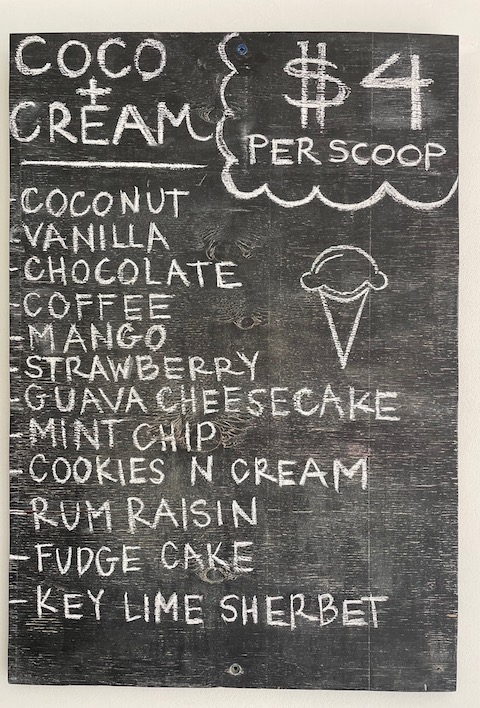 COCO
+
CREAM
$4
PER SCOOP
-COCONUT
-VANILLA
-CHOCOLATE
-COFFEE
-MANGO
-STRAWBERRY
-GUAVA CHEESECAKE
-MINT CHIP
-COOKIES N CREAM
RUM RAISIN
-FUDGE CAKE
-KEY LIME SHERBET